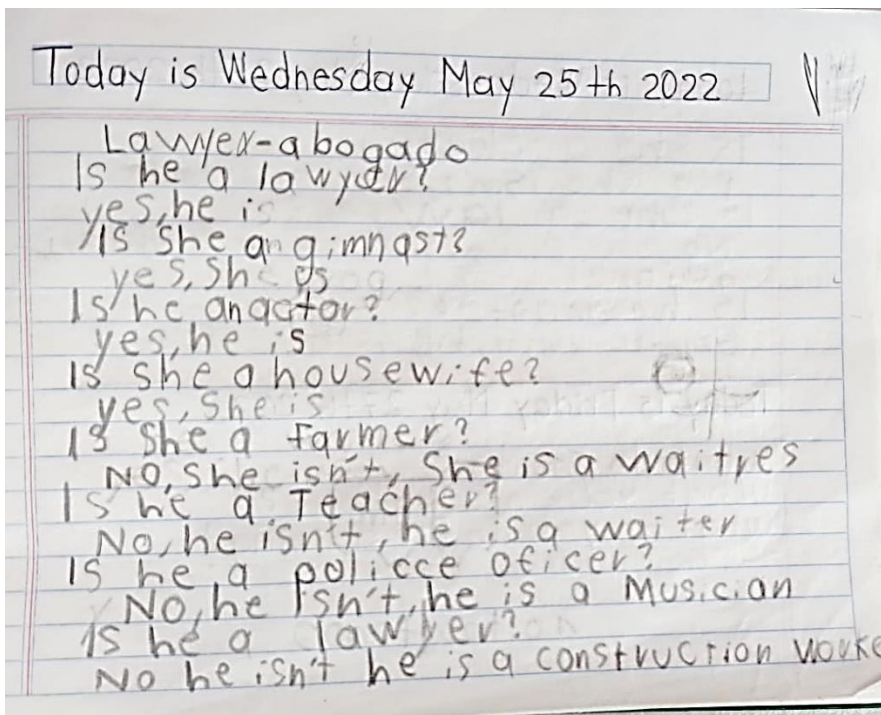 Today is Wednesday May 25th 2022
Lawyer-abogado
Is he a lawyer?
yes, he is
Is she an gimnast?
yes, She is
Is he an actor?
yes, he is
Is she a housewife?
yes, she is
Is She a farmer?
NO, she isn't, She is a waitres
Is he a Teacher?
No, he isn't, he is a waiter
Is he a policce oficer?
No, he isn't, he is a Musician
Is he a lawyer?
No he isn't he is a construction worke